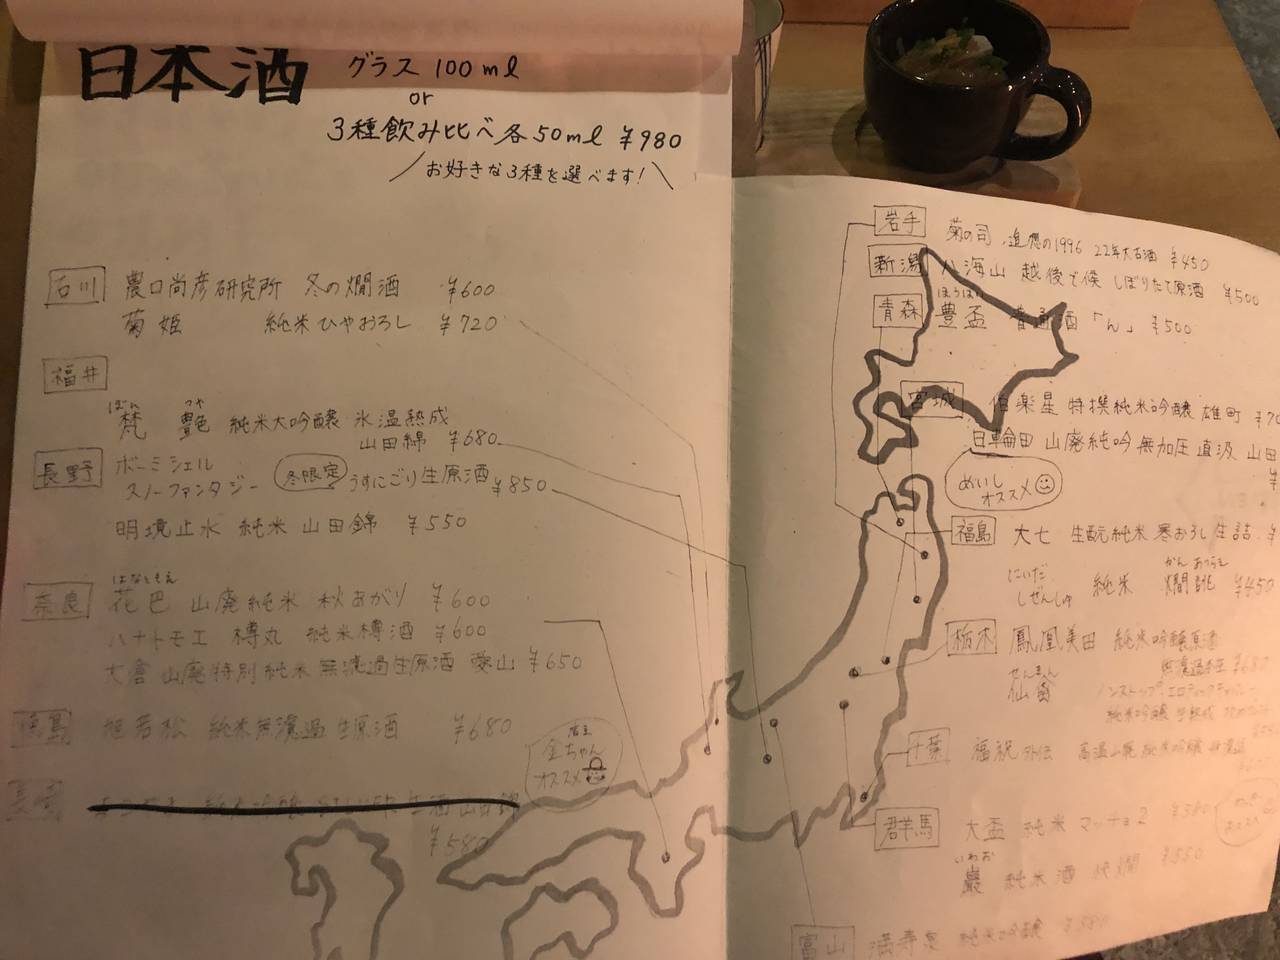 日本酒 グラス 100ml
or
3種飲み比べ 各50ml ¥980
お好きな3種を選べます!
石川 農口尚彦研究所 冬の燗酒 ¥600
菊姫 純米ひやおろし ¥720
福井
ぼん つや
梵 艶 純米大吟醸 氷温熟成
山田綿 ¥680
長野 ボーミシェル
スノーファンタジー 冬限定 うすにごり生原酒 ¥850
明境止水 純米 山田錦 ¥550
奈良 はなともえ
花巴 山廃純米 秋あがり ¥600
ハナトモエ 樽丸 純米樽酒 ¥600
大倉 山廃特別純米 無濾過生原酒 愛山 ¥650
徳島 旭若松 純米無濾過生原酒 ¥680
店主
金ちゃん
オススメ
¥580
岩手 菊の司 追憶の1996 22年大古酒 ¥450
新潟 八海山 越後で候 しぼりたて原酒 ¥500
ほうはい
青森 豊盃 普通酒「ん」 ¥500
宮城 伯楽星 特撰純米吟醸 雄町
日輪田 山廃純吟 無加圧直汲 山田
めいし
オススメ
福島 大七 生酛純米 寒おろし 生詰
にいだ
しぜんしゅ 純米 かんあつらえ
燗誂 ¥450
栃木 鳳凰美田 純米吟醸原酒
無濾過本生 ¥680
せんきん
仙禽
純米吟醸
千葉 福祝
群馬 大盃 純米 マッチョ2 ¥580
いわお
巌 純米酒 快燗 ¥550
富山 満寿泉 純米吟醸 ¥580